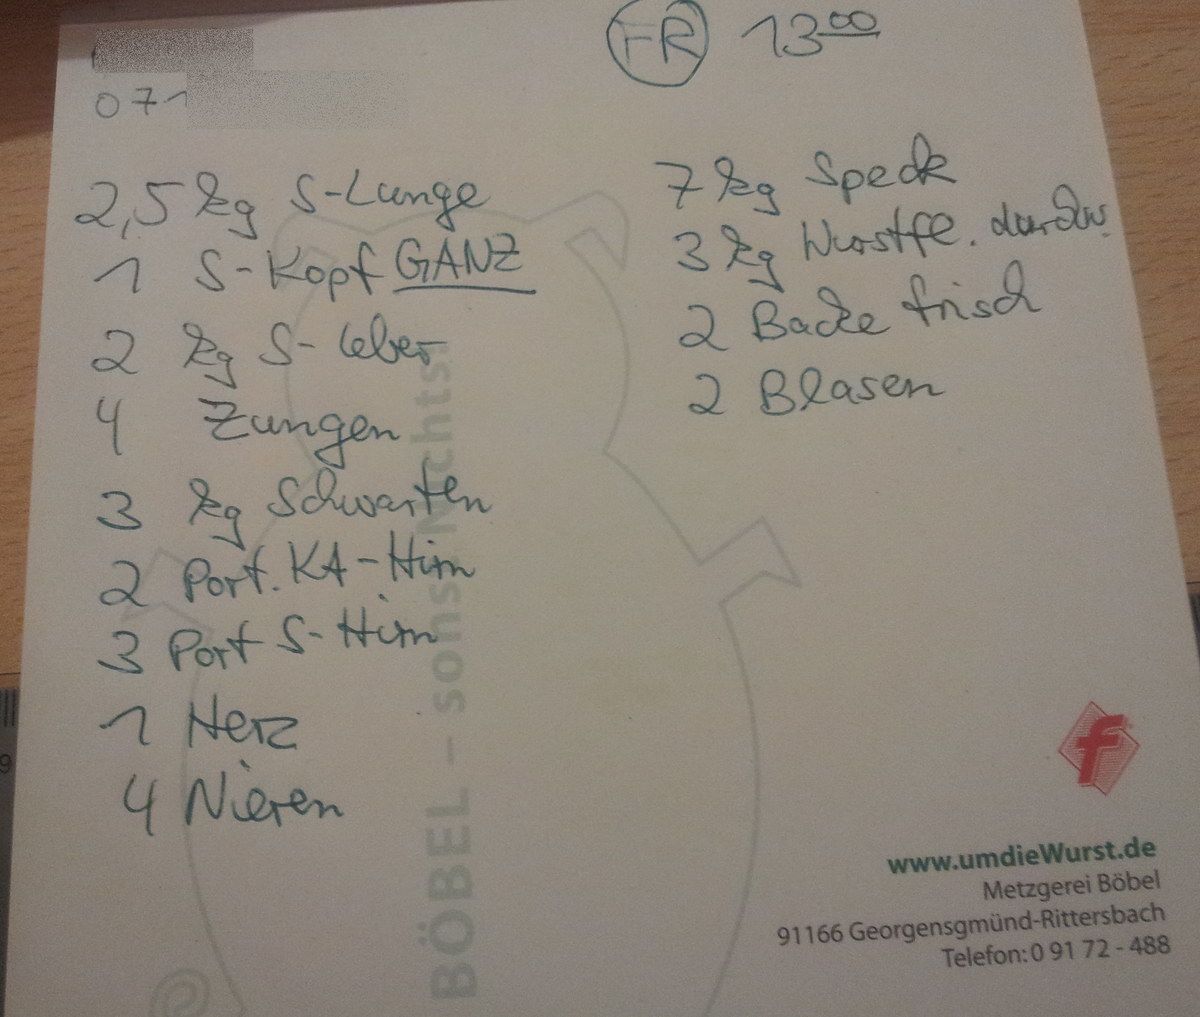 FR 13 00
071
2,5 kg S-Lunge
1 S-Kopf GANZ
2 kg S-Leber
4 Zungen
3 kg Schwarten
2 Port. KA-Hirn
3 Port S-Hirn
1 Herz
4 Nieren
7 kg Speck
3 kg Wurstfe. durchw.
2 Backe frisch
2 Blasen
BÖBEL – sonst Nichts.
f
www.umdieWurst.de
Metzgerei Böbel
91166 Georgensgmünd-Rittersbach
Telefon: 0 91 72 - 488